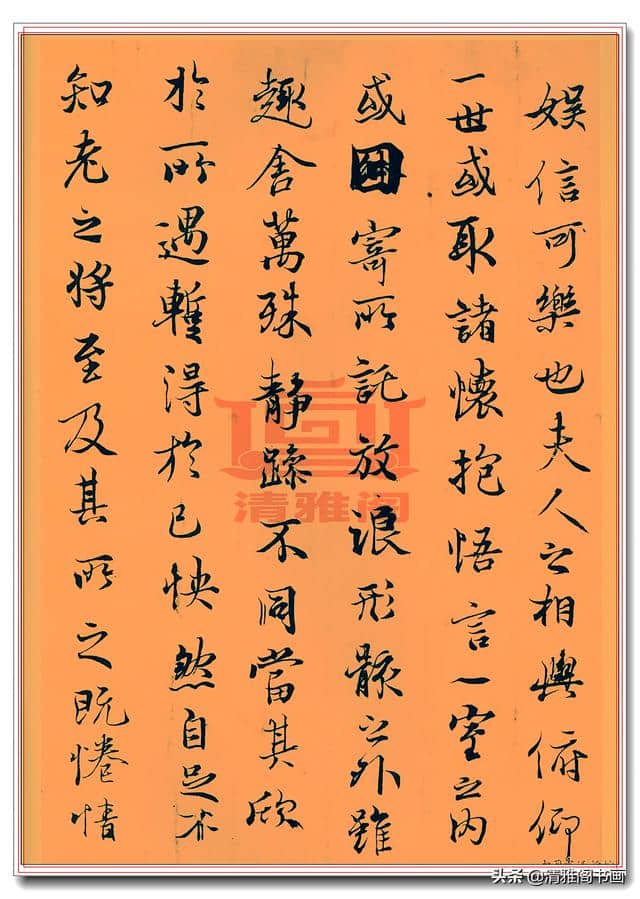 娱信可樂也夫人之相與俯仰
一世或取諸懷抱悟言一室之内
或因寄所託放浪形骸之外雖
趣舍萬殊静躁不同當其欣
於所遇暫得於己怏然自足不
知老之將至及其所之既惓情
清雅阁
头条 @清雅阁书画